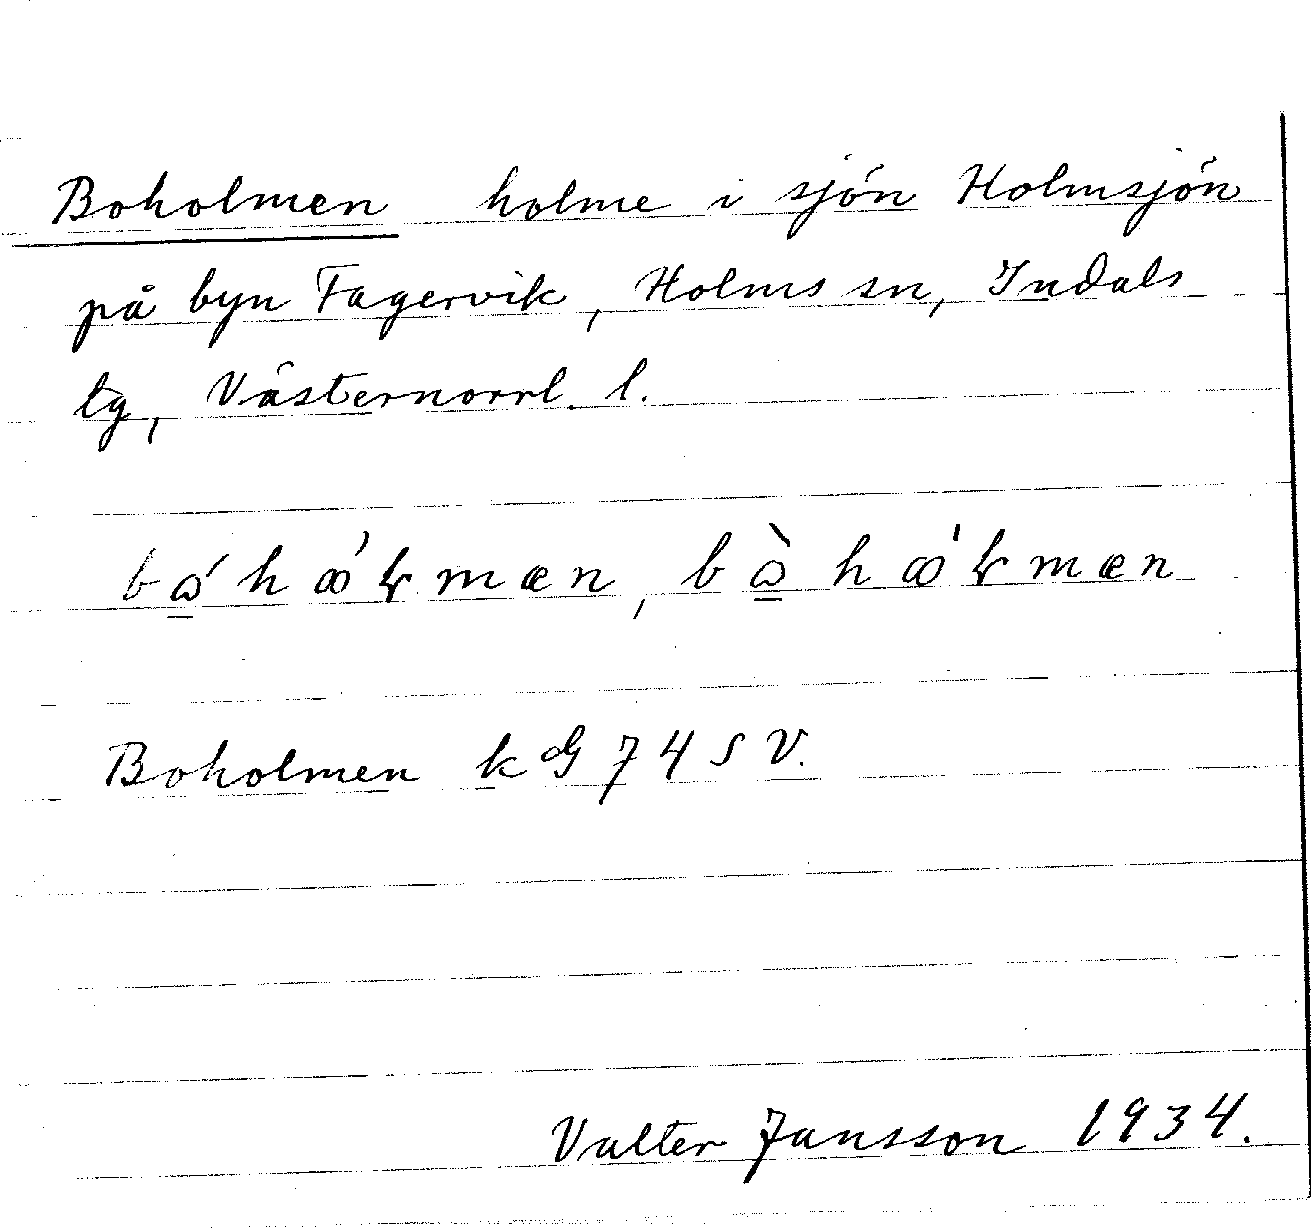 Boholmen holme i sjön Holmsjön
på byn Fagervik, Holms sn, Indals
tg, Västernorrl. l.
Boholmen kG 74 SV.
Valter Jansson 1934.